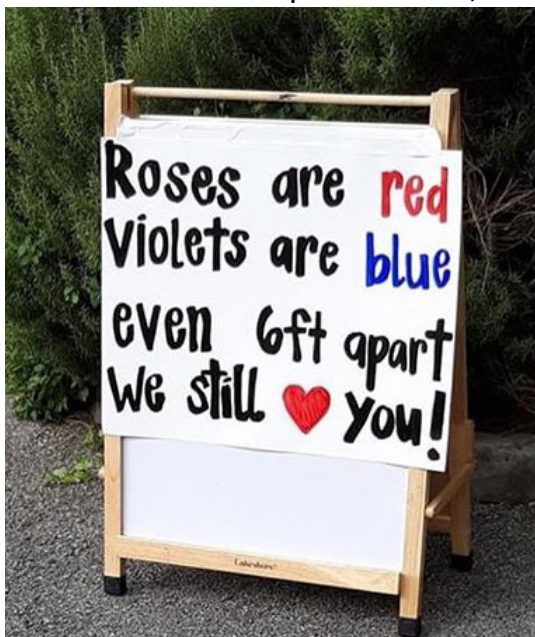 Roses are red
Violets are blue
even 6ft apart
We still ❤ you!
Lakeshore